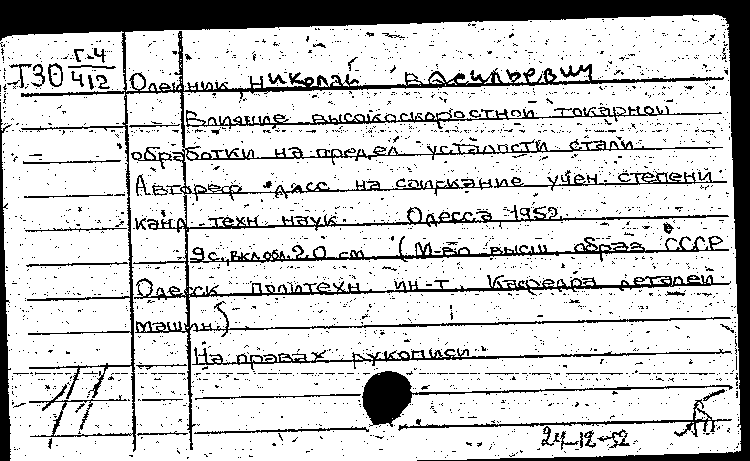 Г-4
Т30 412
Олейник, Николай Васильевич
Влияние высокоскоростной токарной
обработки на предел усталости стали.
Автореф. дисс. на соискание учен. степени
канд. техн. наук. Одесса, 1952.
9с., вкл. обл. 20 см. (М-во высш. образ. СССР
Одесск. политехн. ин-т. Кафедра деталей
машин.)
На правах рукописи.
11
24-12-52